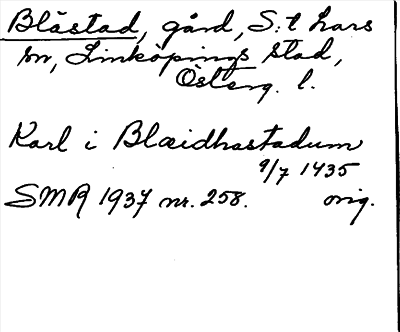 Blåstad, gård, S:t Lars
sn, Linköpings stad,
Österg. l.
Karl i Blæidhastadum
9/7 1435
SMR 1937 nr. 258. orig.